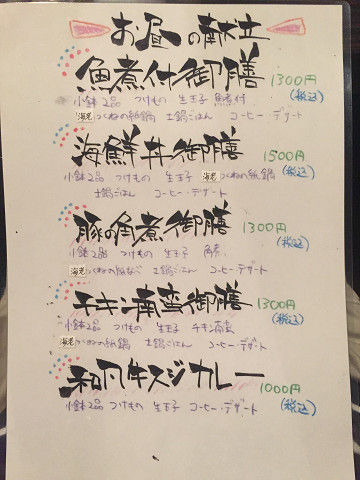 お昼の献立
魚煮付御膳 1300円
(税込)
小鉢2品 つけもの 生玉子 魚煮付
海老つくねの紙鍋 土鍋ごはん コーヒー・デザート
海鮮丼御膳 1500円
(税込)
小鉢2品 つけもの 生玉子 海老つくねの紙鍋
土鍋ごはん コーヒー・デザート
豚の角煮御膳 1300円
(税込)
小鉢2品 つけもの 生玉子 角煮
海老つくねの紙なべ 土鍋ごはん コーヒー・デザート
チキン南蛮御膳 1300円
(税込)
小鉢2品 つけもの 生玉子 チキン南蛮
海老つくねの紙鍋 土鍋ごはん コーヒー・デザート
和風牛スジカレー 1000円
(税込)
小鉢2品 つけもの 生玉子 コーヒー・デザート